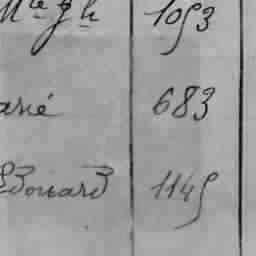 Mie Jh 1053
arié 683
Edouard 1145